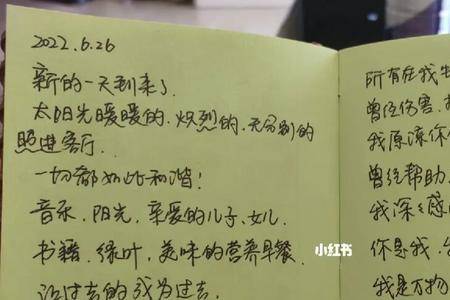 2022.6.26
新的一天到来了
太阳光暖暖的、炽烈的、无分别的
照进客厅.
一切都如此和谐!
音乐、阳光、亲爱的儿子、女儿、
书籍、绿叶、美味的营养早餐、
让过去的成为过去.
所有在我生
曾经伤害
我原谅你
曾经帮助
我深深感
你是我
我是万物
小红书